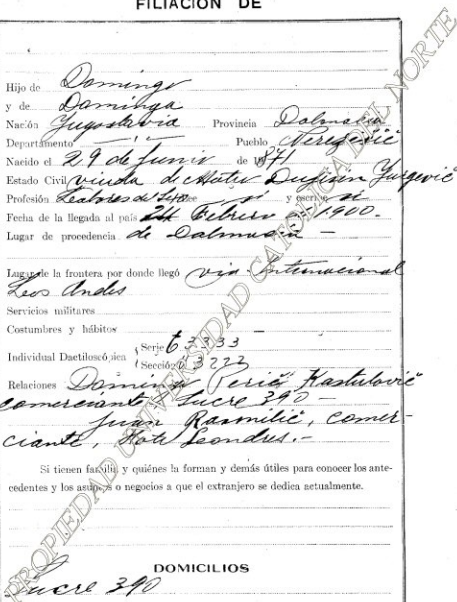 FILIACION DE
Hijo de Domingo
y de Dominga
Nación Yugoslavia Provincia Dalmacia
Departamento — " — Pueblo Nerežišč
Nacido el 29 de Junio de 1871
Estado Civil viuda de Mateo Yurgević
Profesión Labores de Sexo Lee si y escribe si
Fecha de la llegada al país 24 Febrero 1.900.-
Lugar de procedencia de Dalmacia —
Lugar de la frontera por donde llegó via Internacional
Los Andes
Servicios militares
Costumbres y hábitos —
Individual Dactiloscópica Serie 3333
Sección 3222
Relaciones Domingo Perić Kastulović
comerciante Sucre 390 —
Juan Rasmilić, comer-
ciante, Hotel Londres.-
Si tienen familia y quiénes la forman y demás útiles para conocer los ante-
cedentes y los asuntos o negocios a que el extranjero se dedica actualmente.
DOMICILIOS
Sucre 390
PROPIEDAD UNIVERSIDAD CATOLICA DEL NORTE